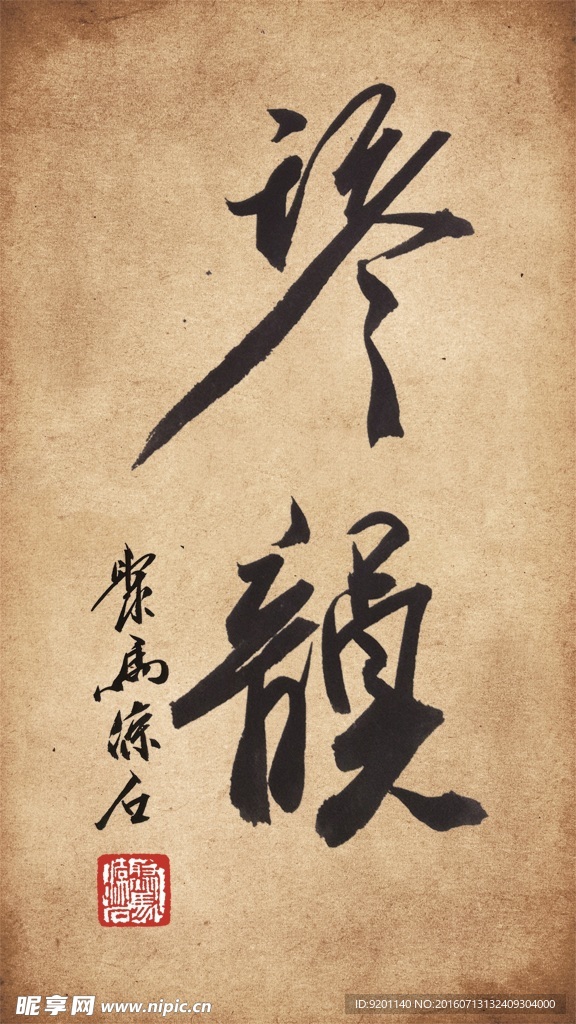 琴韻
聚馬涼石
昵享网 www.nipic.cn
ID:9201140 NO:20160713132409304000